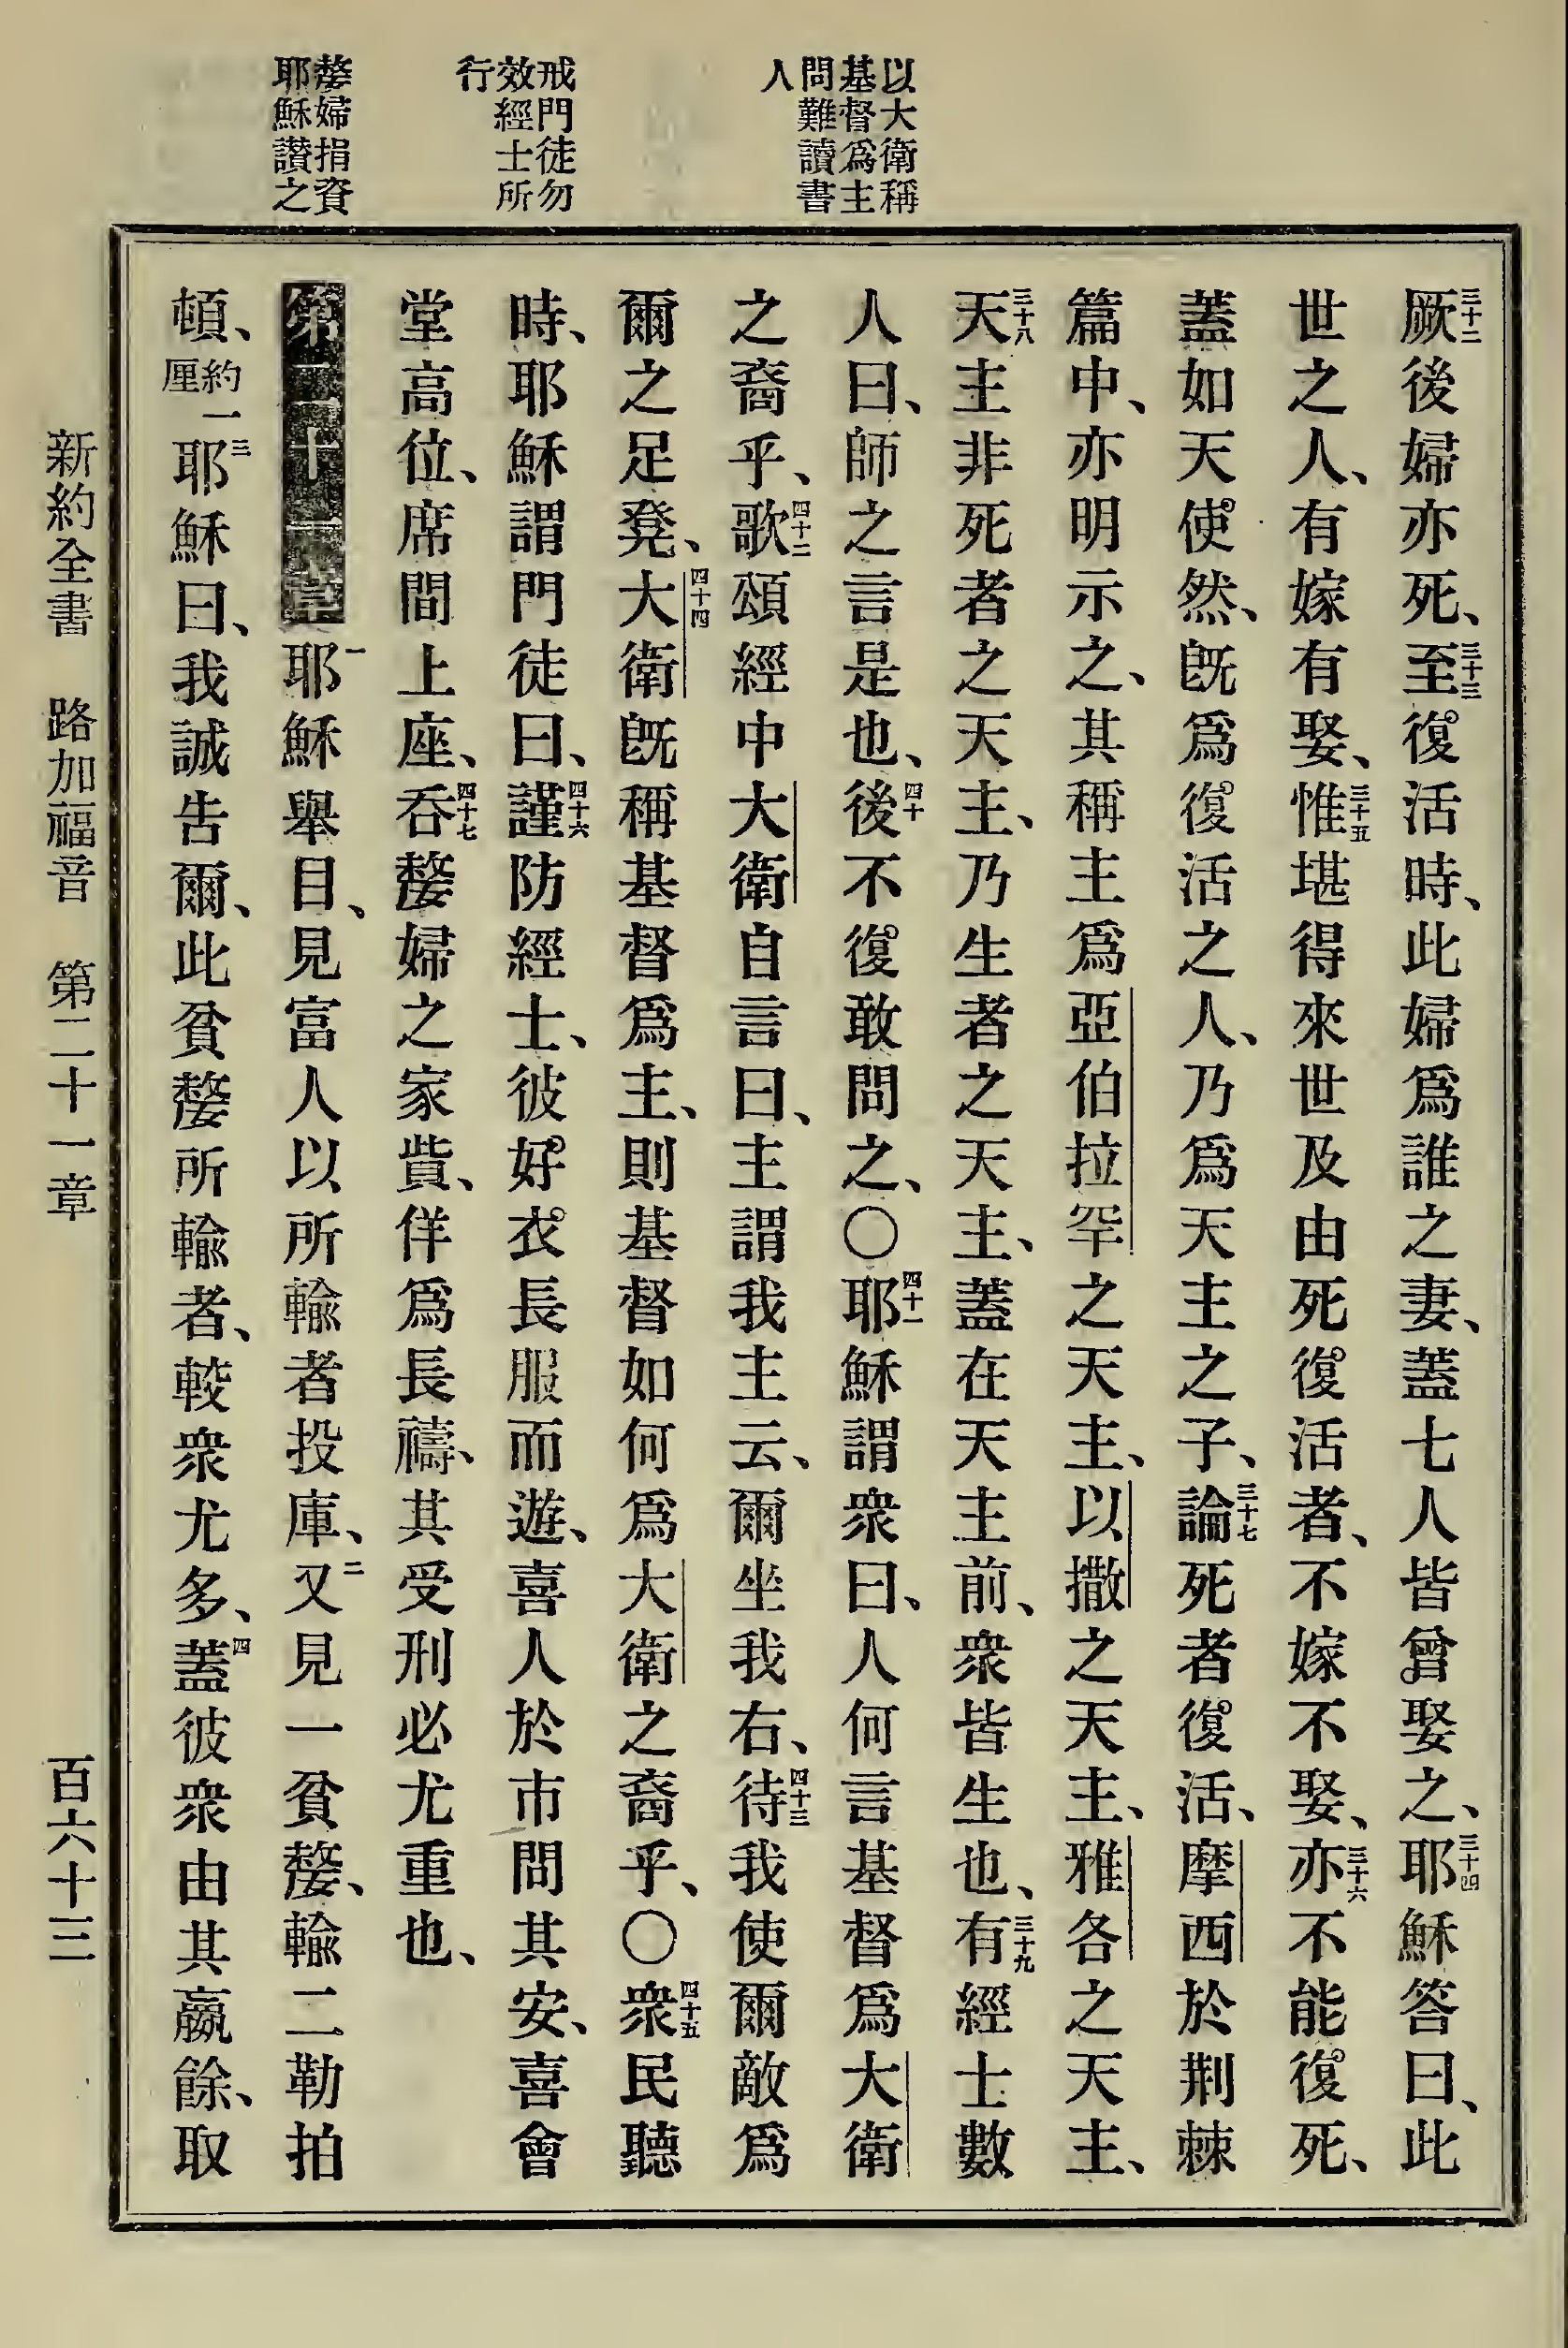 以大衛稱
基督爲主
問難讀書
人
戒門徒勿
效經士所
行
嫠婦捐資
耶穌讚之
三十二厥後婦亦死、三十三至復活時、此婦爲誰之妻、蓋七人皆曾娶之、三十四耶穌答曰、此
世之人、有嫁有娶、三十五惟堪得來世及由死復活者、不嫁不娶、三十六亦不能復死、
蓋如天使然、旣爲復活之人、乃爲天主之子、三十七論死者復活、摩西於荆棘
篇中、亦明示之、其稱主爲亞伯拉罕之天主、以撒之天主、雅各之天主、
三十八天主非死者之天主、乃生者之天主、蓋在天主前、衆皆生也、三十九有經士數
人曰、師之言是也、四十後不復敢問之、〇四十一耶穌謂衆曰、人何言基督爲大衛
之裔乎、四十二歌頌經中大衛自言曰、主謂我主云、爾坐我右、四十三待我使爾敵爲
爾之足凳、四十四大衛旣稱基督爲主、則基督如何爲大衛之裔乎、〇四十五衆民聽
時、耶穌謂門徒曰、四十六謹防經士、彼好衣長服而遊、喜人於市問其安、喜會
堂高位、席間上座、四十七吞嫠婦之家貲、佯爲長禱、其受刑必尤重也、
第二十一章一耶穌舉目、見富人以所輸者投庫、二又見一貧嫠、輸二勒拍
頓、約一厘三耶穌曰、我誠告爾、此貧嫠所輸者、較衆尤多、四蓋彼衆由其嬴餘、取
新約全書 路加福音 第二十一章 百六十三